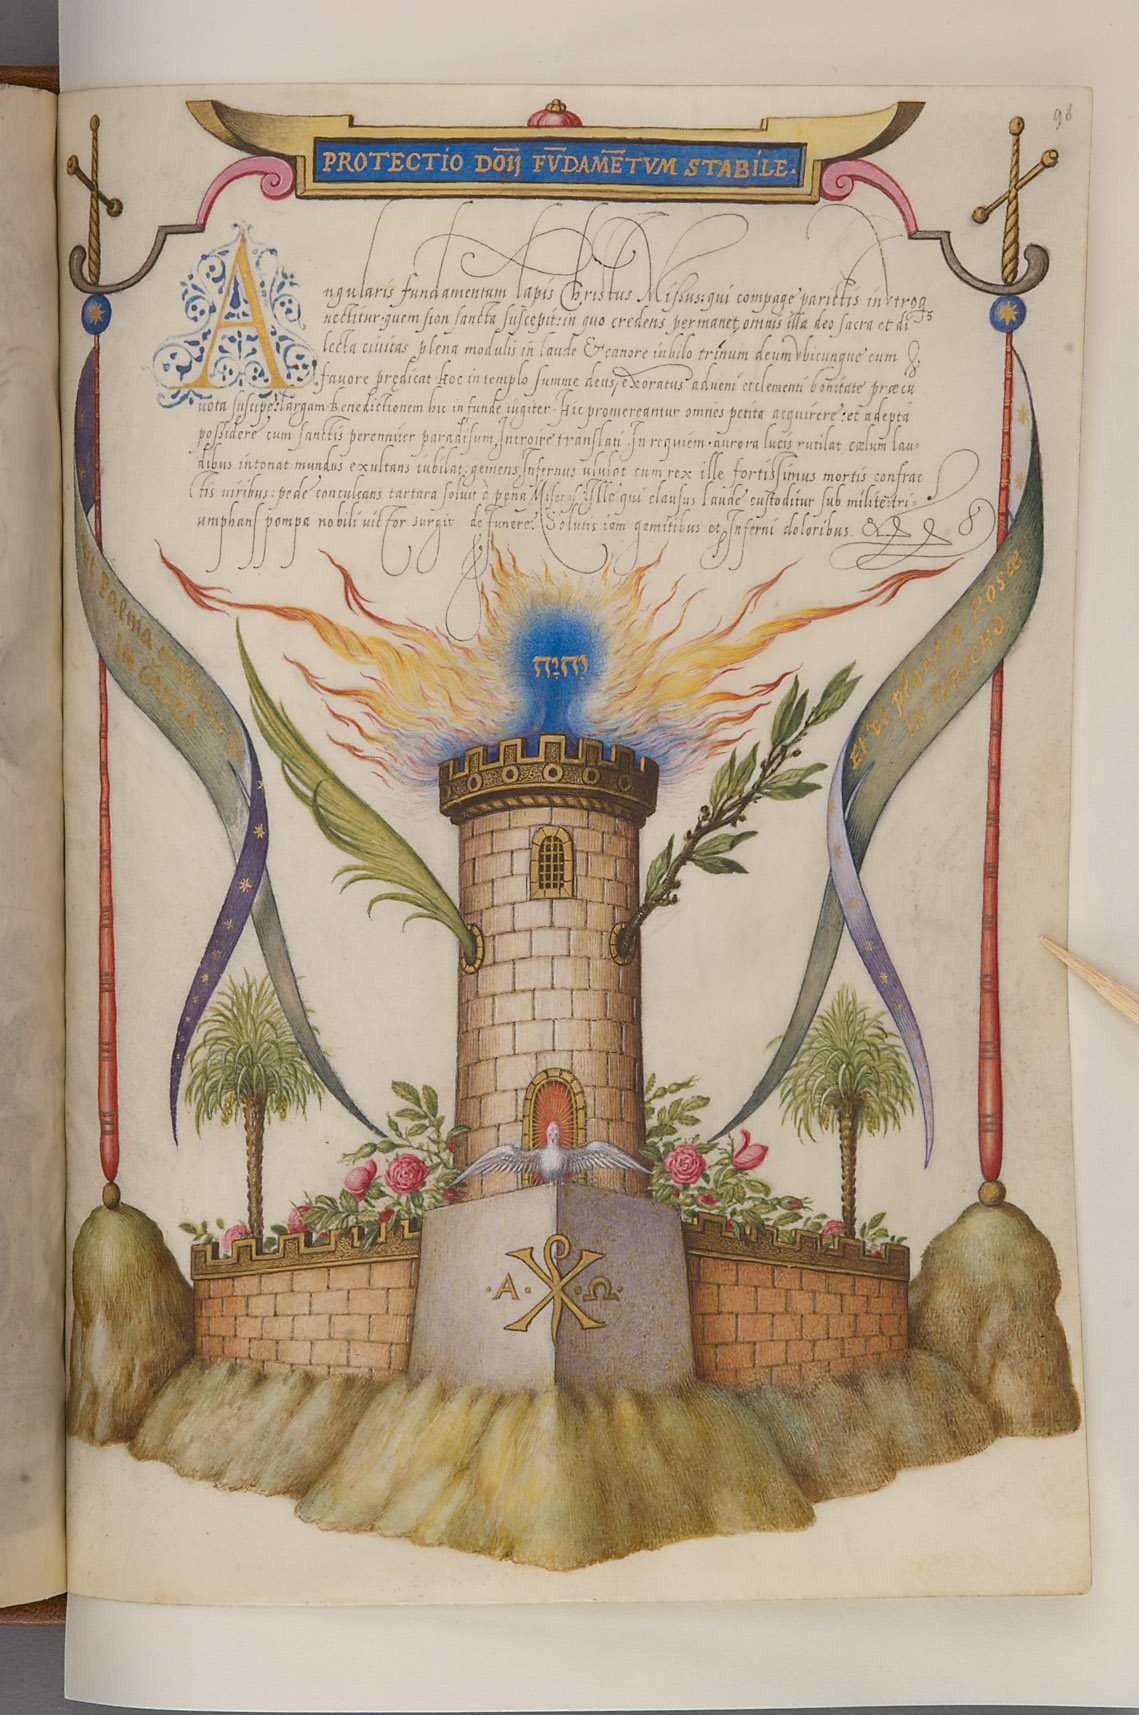 98
PROTECTIO DOÑI FV̄DAMĒTVM STABILE.
Angularis fundamentum lapis Christus Missus: qui compage parietis in vtroq
nectitur: quem sion sancta suscepit: in quo credens permanet, omnis illa deo sacra et di
lecta ciuitas plena modulis in laude & canore iubilo trinum deum vbicunque cum
fauore prędicat Hoc in templo summe deus, exoratus adueni et clementi bonitate præcū
uota suscipe: largam benedictionem hic in funde iugiter. Hic promereantur omnes petita acquirere: et adepta
possidere cum sanctis perenniter paradisum Introire translati In requiem. aurora lucis rutilat cælum lau-
dibus intonat mundus exultans iubilat: gemens Infernus ululat cum rex ille fortissimus mortis confrac
tis viribus: pede conculcans tartara soluit à pena Miseros. Ille qui clausus laude custoditur sub milite: tri-
umphans pompa nobili victor surgit de funere. Solutis iam gemitibus et Inferni doloribus.
Palma
IN CADES
Et vt plantatio Rosæ
IN IERICHO.
יהוה
·A· ·Ω·